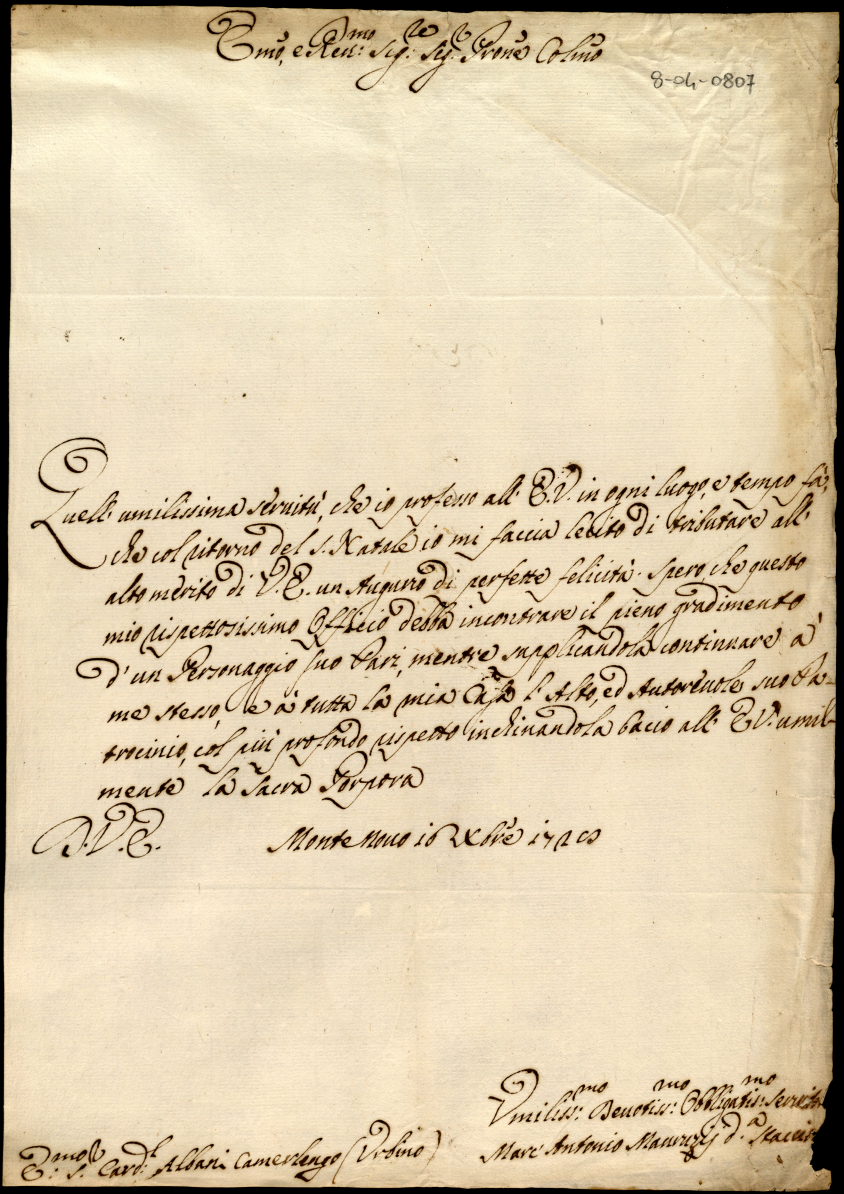 Emo, e Rev:mo Sig:re Sig:r Prone Colmo
8-04-0807
Quell' umilissima servitù, che io professo all' E.V. in ogni luogo, e tempo fà,
che col ritorno del S. Natale io mi faccia lecito di tributare all'
alto merito di V.E. un Augurio di perfette felicità. Spero, che questo
mio rispettosissimo Officio debba incontrare il pieno gradimento
d' un Personaggio suo Pari, mentre supplicandola continuare à
me stesso, e à tutta la mia Casa l' Alto, ed Autorevole suo Pa-
trocinio, col più profondo rispetto inchinandola bacio all' E.V. umil-
mente la Sacra Porpora
D.V.E. Monte Novo 16 Xbre
Umiliss:mo Devotiss:mo Obbligatis:mo
E:mo S.r Card:l Albani Camerlengo (Urbino)
Marc' Antonio d.a